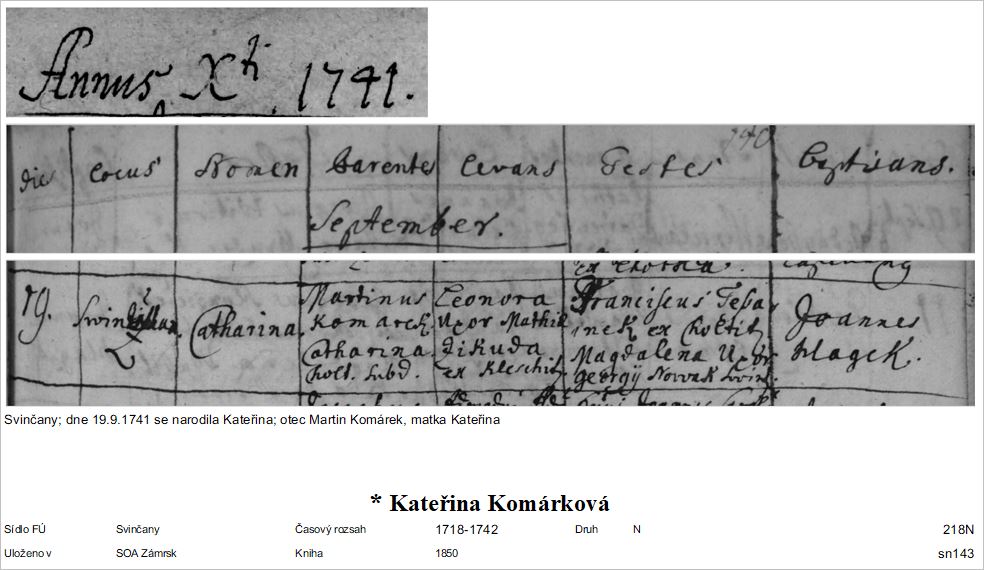 Annus Xti 1741.
dies Locus Nomen Parentes Levans Testes Baptisans.
September.
19. Swinczan Catharina Martinus Leonora Franciscus Joannes
Komarek Uxor Mathie ex Choltitz
Catharina Magdalena Uxor
Kolt. Subd. ex Kleschitz Georgÿ Nowak Swint.
Svinčany; dne 19.9.1741 se narodila Kateřina; otec Martin Komárek, matka Kateřina
* Kateřina Komárková
Sídlo FÚ Svinčany Časový rozsah 1718-1742 Druh N 218N
Uloženo v SOA Zámrsk Kniha 1850 sn143